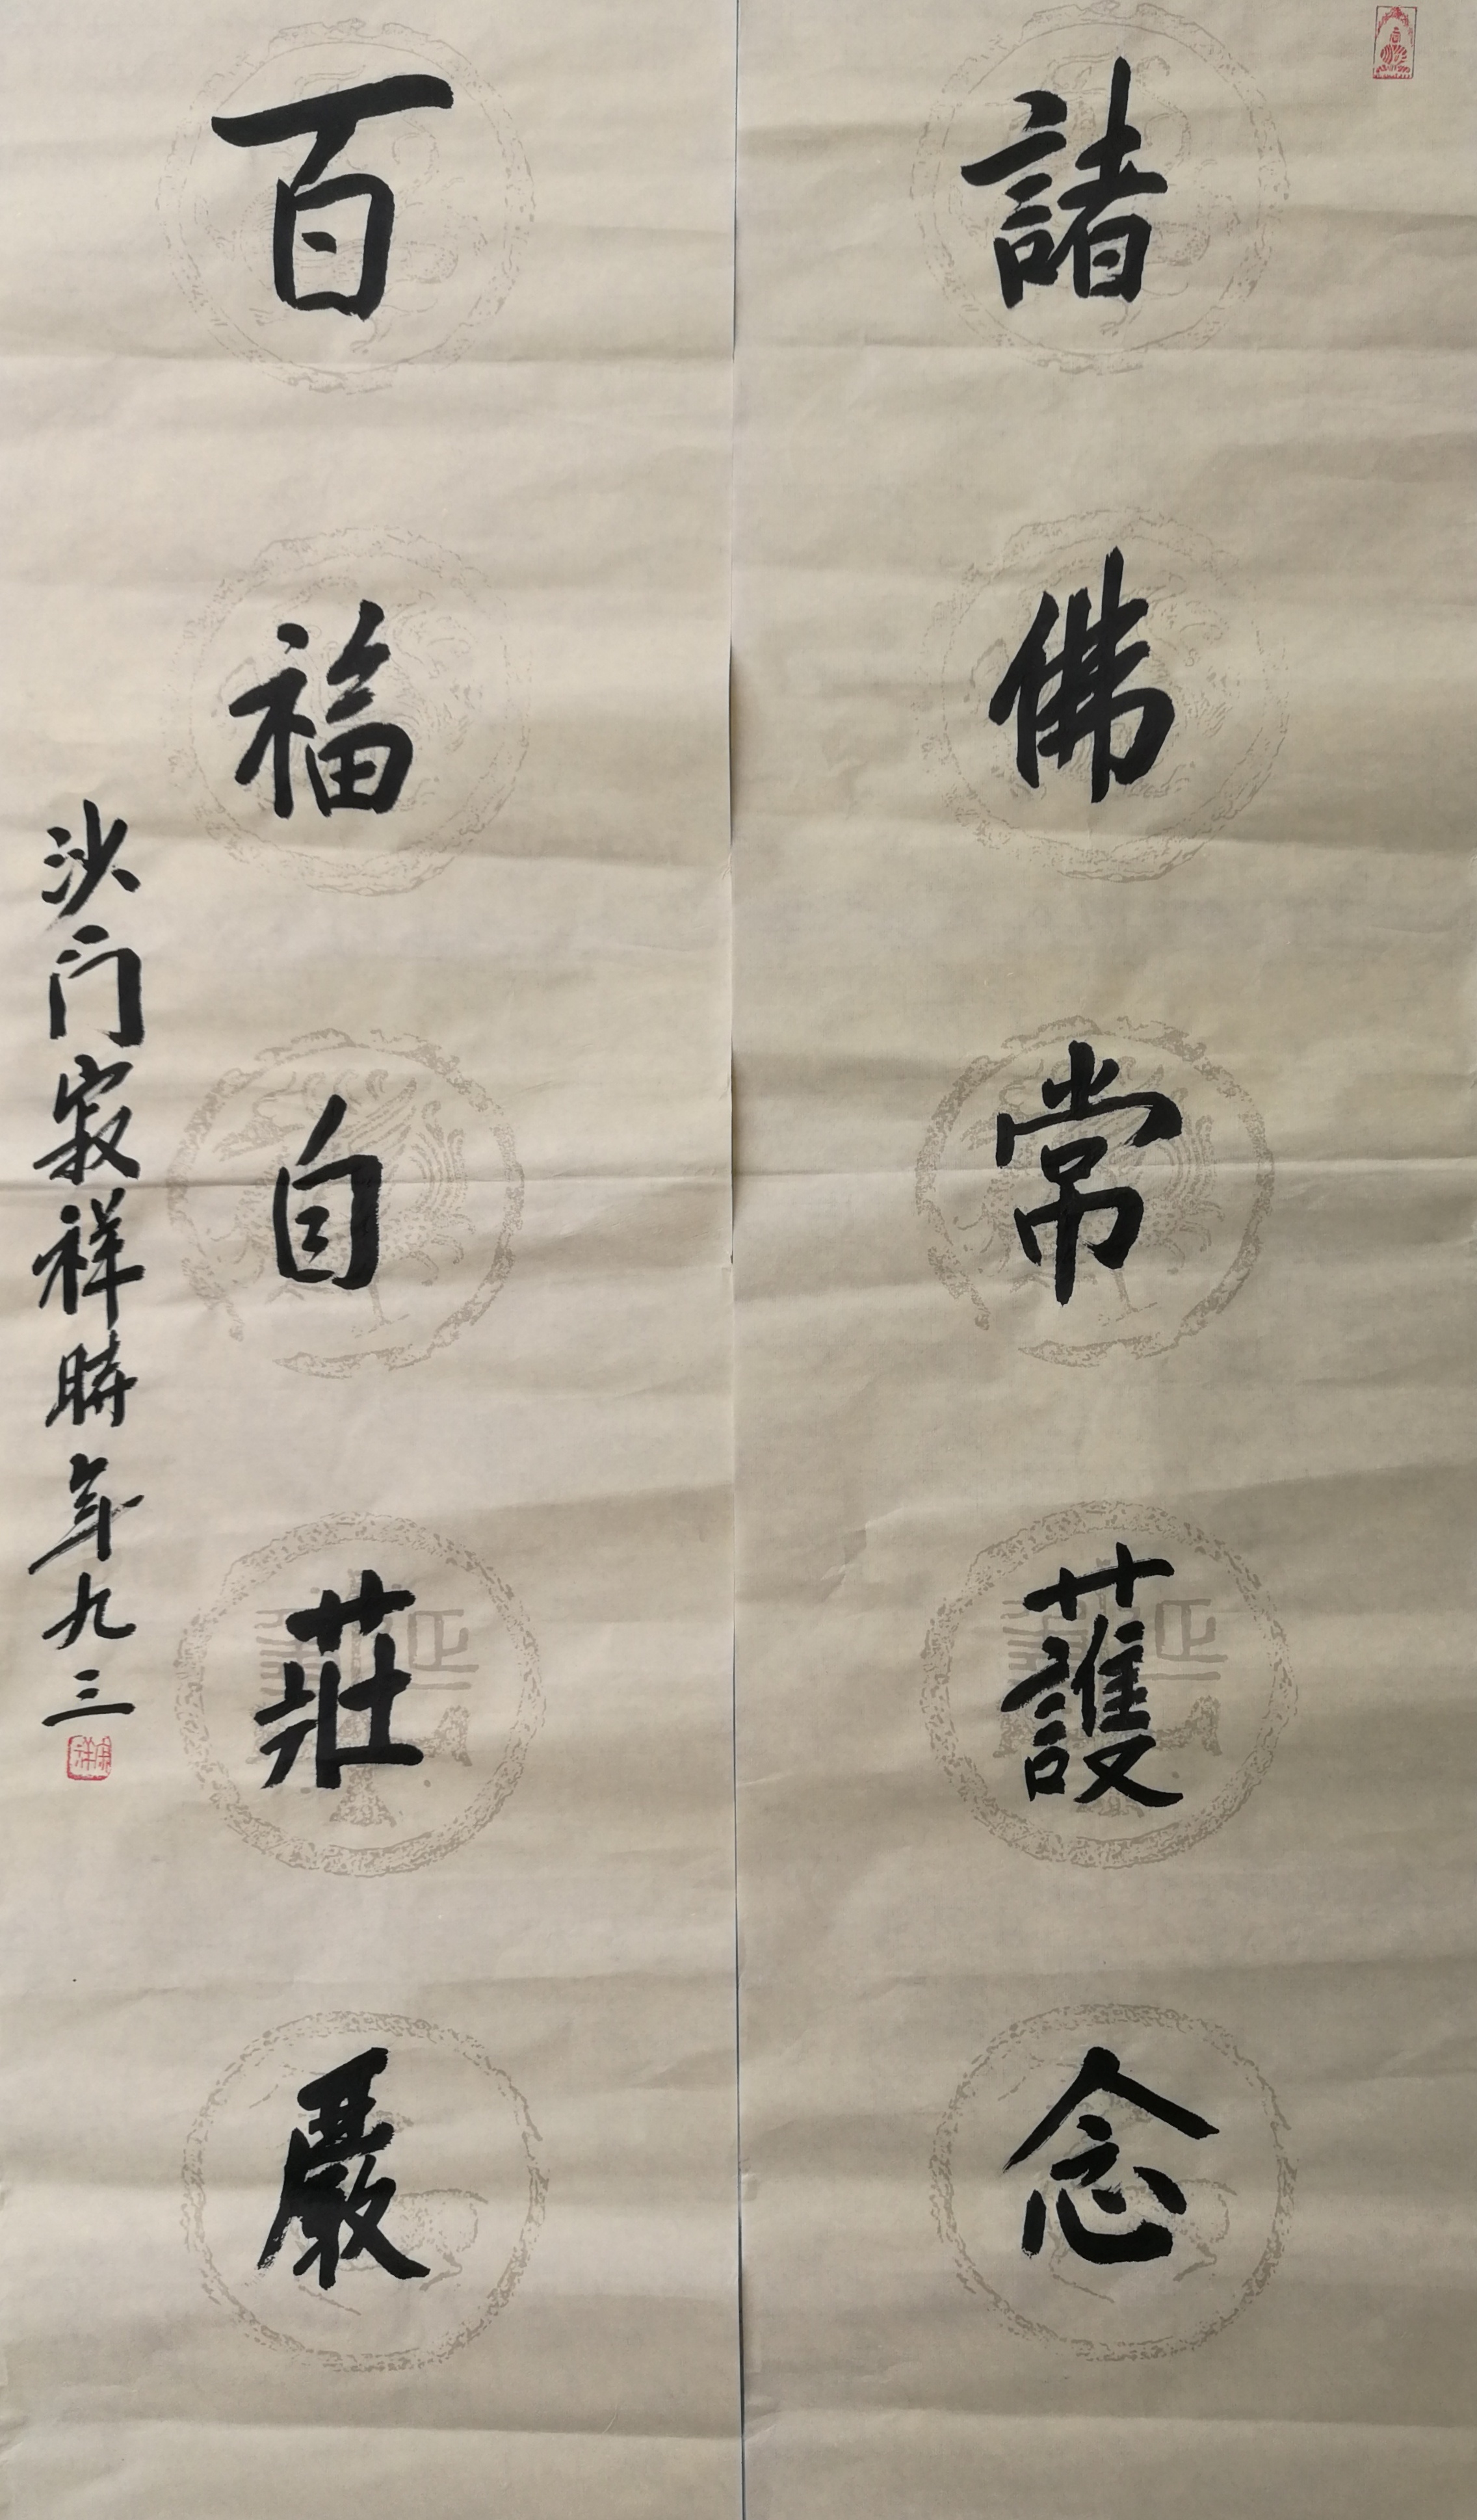 諸佛常護念
百福自莊嚴
沙门寂祥時年九三